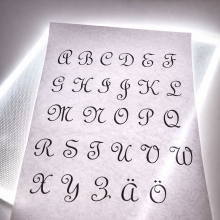 A B C D E F
G H I J K L
M N O P Q
R S T U V W
X Y Z Ä Ö